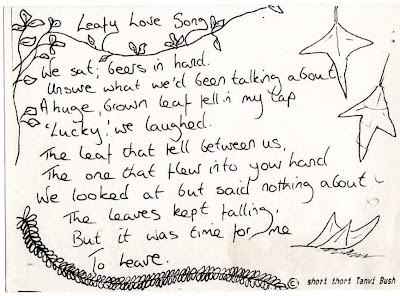 Leafy Love Song
We sat, beers in hand.
Unsure what we'd been talking about
A huge, brown leaf fell in my lap
'Lucky'! we laughed.
The leaf that fell between us,
The one that flew into your hand
We looked at but said nothing about -
The leaves kept falling,
But it was time for me
To leave.
© short thort Tanvi Bush